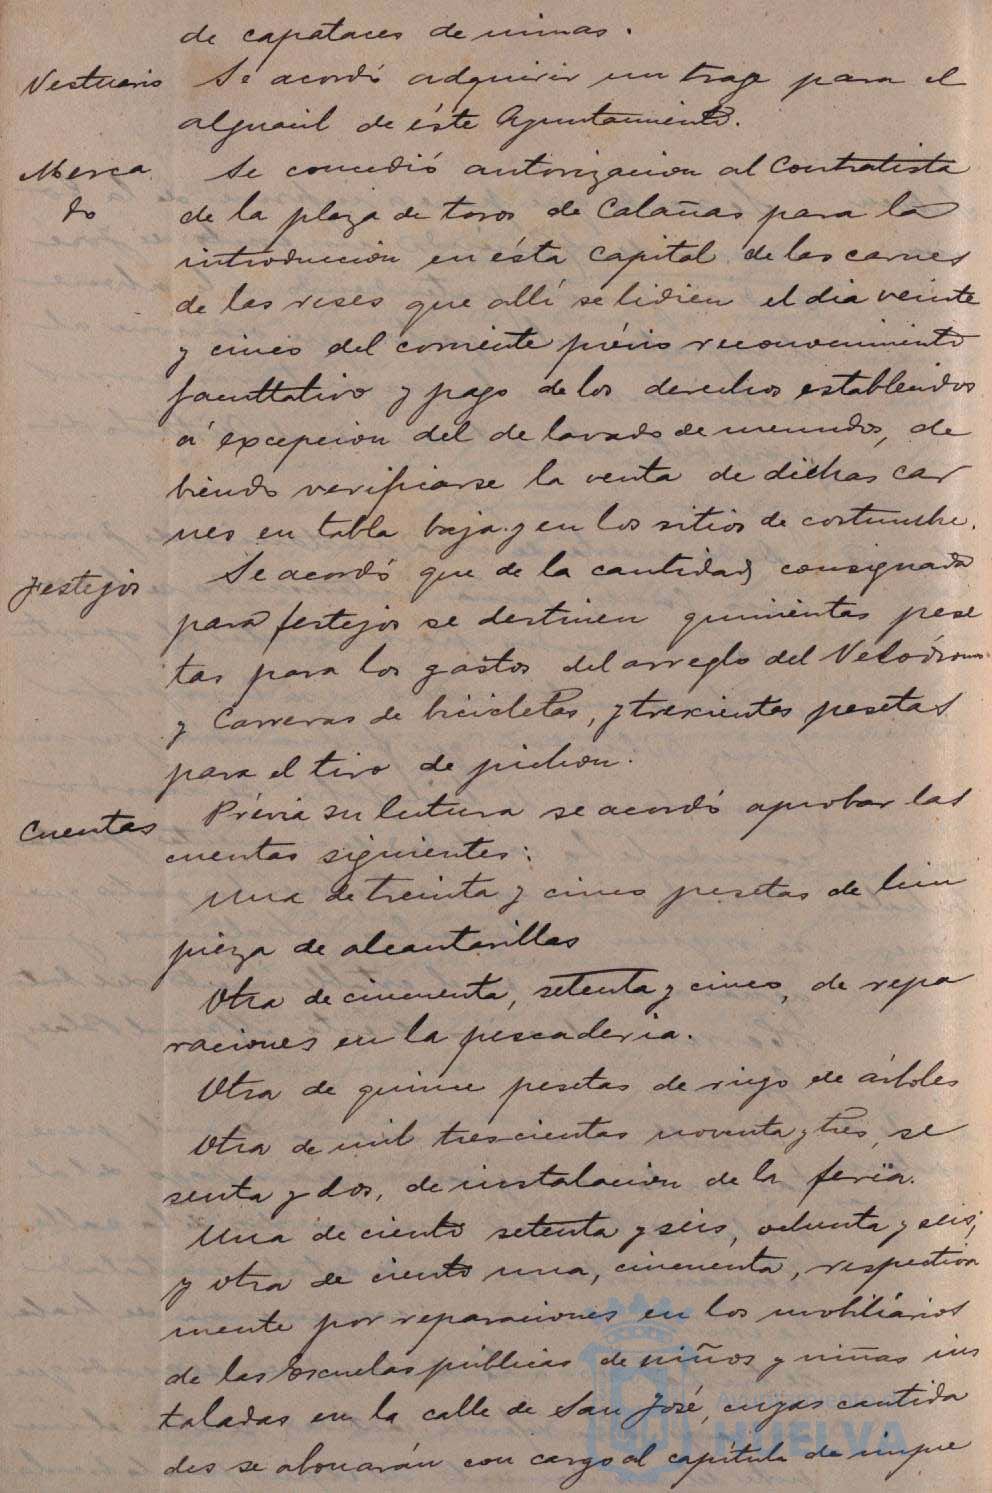 de capataces de minas.
Vestuario
Se acordó adquirir un trage para el
alguacil de éste Ayuntamiento.
Merca
do
Se concedió autorizacion al Contratista
de la plaza de toros de Calañas para la
introduccion en ésta Capital de las carnes
de las reses que allí se lidien el dia veinte
y cinco del corriente prévio reconocimiento
facultativo y pago de los derechos establecidos
á excepcion del de lavado de menudos, de
biendo verificarse la venta de dichas car
nes en tabla baja y en los sitios de costumbre.
Festejos
Se acordó que de la cantidad consignada
para festejos se destinen quinientas pese
tas para los gastos del arreglo del Velódromo
y Carreras de bicicletas, y trescientas pesetas
para el tiro de pichon.
Cuentas
Prévia su lectura se acordó aprobar las
cuentas siguientes:
Una de treinta y cinco pesetas de lim
pieza de alcantarillas
Otra de cincuenta, setenta y cinco, de repa
raciones en la pescaderia.
Otra de quince pesetas de riego de árboles
Otra de mil trescientas noventa y tres, se
senta y dos, de instalacion de la feria.
Una de ciento setenta y seis, ochenta y seis,
y otra de ciento una, cincuenta, respectiva
mente por reparaciones en los mobiliários
de las Escuelas públicas de niños y niñas ins
taladas en la calle de San José, cuyas cantida
des se abonarán con cargo al capítulo de impre
Ayuntamiento de
HUELVA